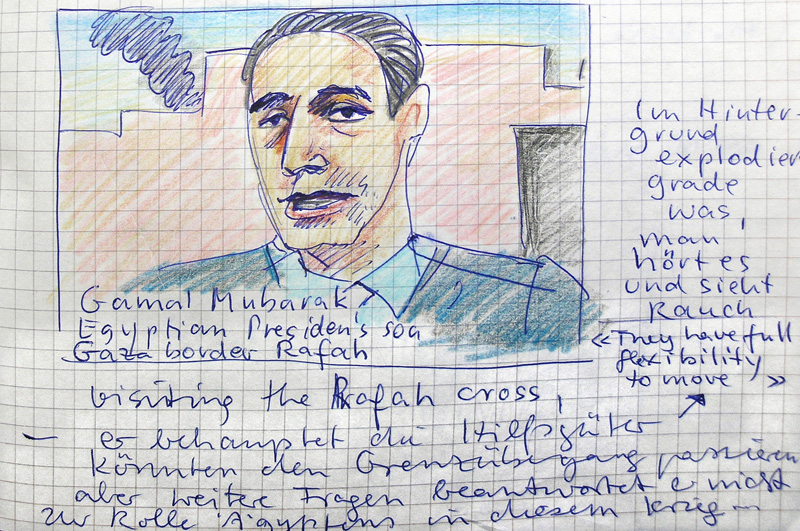 Im Hinter-
grund
explodier
grade
was,
man
hört es
und sieht
Rauch
Gamal Mubarak
Egyptian Presiden's son
Gaza border Rafah
«They have full
flexibility
to move »
visiting the Rafah cross,
— es behauptet die Hilfsgüter
könnten den Grenzübergang passieren
aber weitere Fragen beantwortet e nicht
zur Rolle Ägyptens in diesem Krieg –